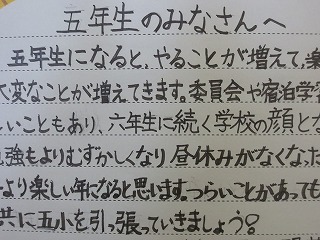 五年生のみなさんへ
五年生になると、やることが増えて、楽
大変なことが増えてきます。委員会や宿泊学習
しいこともあり、六年生に続く学校の顔とな
勉強もよりむずかしくなり昼休みがなくなった
より楽しい年になると思います。つらいことがあっても
共に五小を引っ張っていきましょう。